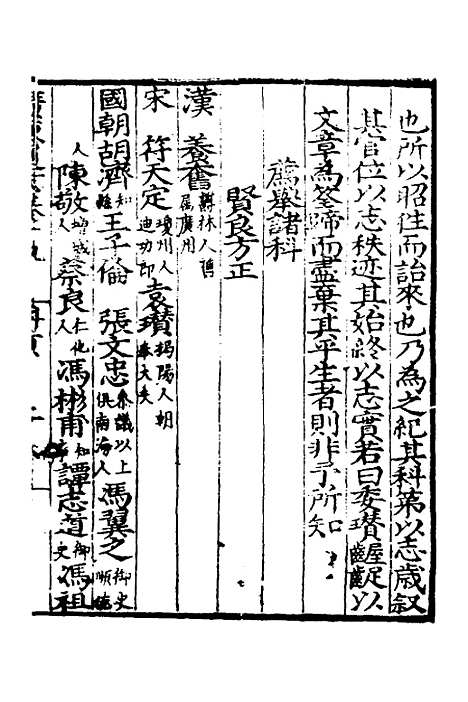 也所以昭往而詒來也乃為之紀其科第以志歲叙
其官位以志秩迹其始終以志實若曰委瓚齷齪以
文章為筌蹄而盡棄其平生者則非予所知
薦舉諸科
賢良方正
漢 養奮 鬱林人舊屬廣州
宋 符天定 瓊州人迪功郎 袁瓚 揭陽人朝奉大夫
國朝胡濟 知 王子倫 張文忠 叅議以上俱南海人 馮翼之 御史順德
人 陳敬 增城人 蔡良 仁化人 馮彬甫 知 譚志道 御史 馮祖